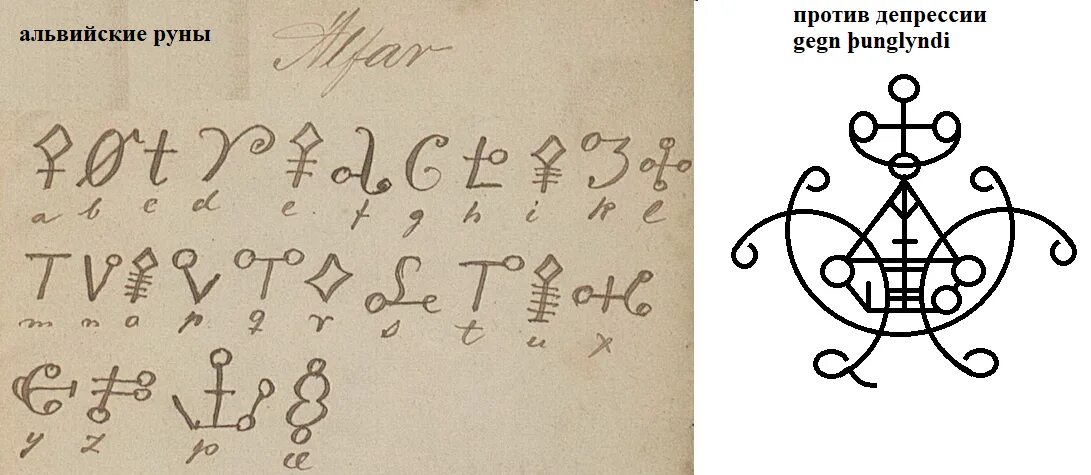 альвийские руны
Alfar
a b c d e f g h i k l
m n o p q r s t u x
y z þ æ
против депрессии
gegn þunglyndi